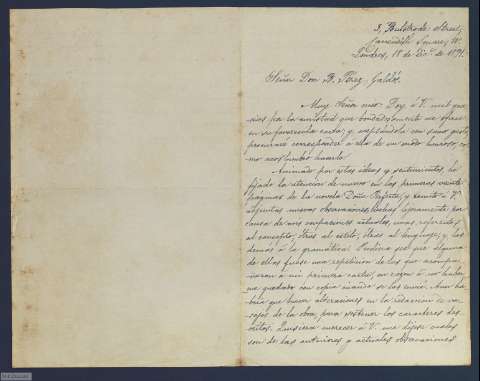 3, Bulstrode Street,
Cavendish Square, W.
Londres, 18 de Dic.e de 1891.
Señor Don B. Pérez Galdós.
Muy Señor mio: Doy á V. mil gra-
cias por la amistad que bondadosamente me ofrece
en su favorecida carta; y aceptándola con sumo gusto,
procuraré corresponder á ella de un modo honroso, co-
mo acostumbro hacerlo.
Animado por estas ideas y sentimientos, he
fijado la atencion de nuevo en las primeras veinte
páginas de la novela Doña Perfecta, y remito á V.
adjuntas nuevas observaciones, hechas ligeramente por
causa de mis ocupaciones actuales, unas, referentes
al concepto, otras al estilo, otras al lenguaje, y las
demás á la gramática. Pudiera ser que alguna
de ellas fuese una repeticion de las que acompa-
ñaron á mi primera carta, en razon á no haber-
me quedado con copia cuando se las envié. Aun ha-
bria que hacer alteraciones en la relacion de
de la obra, para sostener los caracteres des-
critos. Quisiera merecer á V. me dijese cuales
son de las anteriores y actuales observaciones